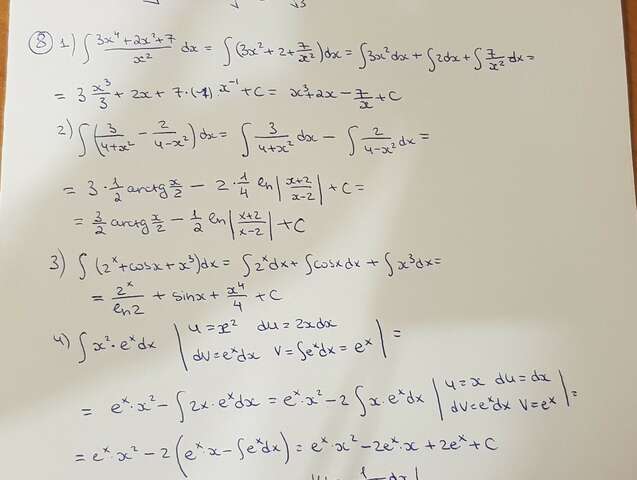 ⑧ 1) ∫ (3x⁴+2x²+7)/x² dx = ∫(3x²+2+7/x²)dx = ∫3x²dx + ∫2dx + ∫7/x² dx =
= 3 x³/3 + 2x + 7·(-1)·x⁻¹ + C = x³+2x - 7/x + C
2) ∫(3/(4+x²) - 2/(4-x²))dx = ∫ 3/(4+x²) dx - ∫ 2/(4-x²) dx =
= 3·1/2 arctg x/2 - 2·1/4 ln|(x+2)/(x-2)| + C =
= 3/2 arctg x/2 - 1/2 ln|(x+2)/(x-2)| + C
3) ∫(2ˣ+cosx+x³)dx = ∫2ˣdx + ∫cosxdx + ∫x³dx =
= 2ˣ/ln2 + sinx + x⁴/4 + C
4) ∫x²·eˣdx | u=x² du=2xdx
dv=eˣdx v=∫eˣdx=eˣ | =
= eˣ·x² - ∫2x·eˣdx = eˣ·x² - 2∫x·eˣdx | u=x du=dx
dv=eˣdx v=eˣ | =
= eˣ·x² - 2(eˣ·x - ∫eˣdx) = eˣ·x² - 2eˣ·x + 2eˣ + C